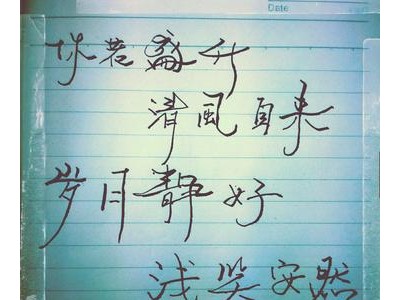 Date
你若盛开
清風自来
岁月静好
浅笑安然